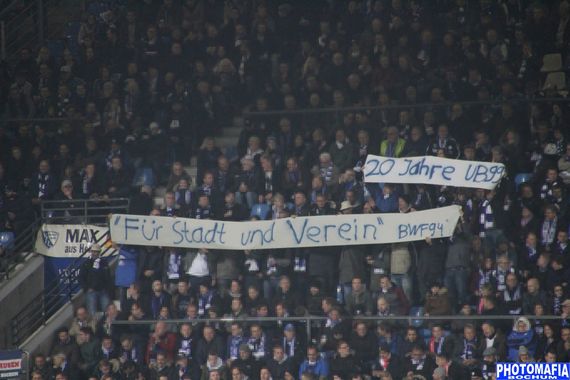 20 Jahre UB99
"Für Stadt und Verein" BWF94
MAX
aus
PHOTOMAFIA
BOCHUM